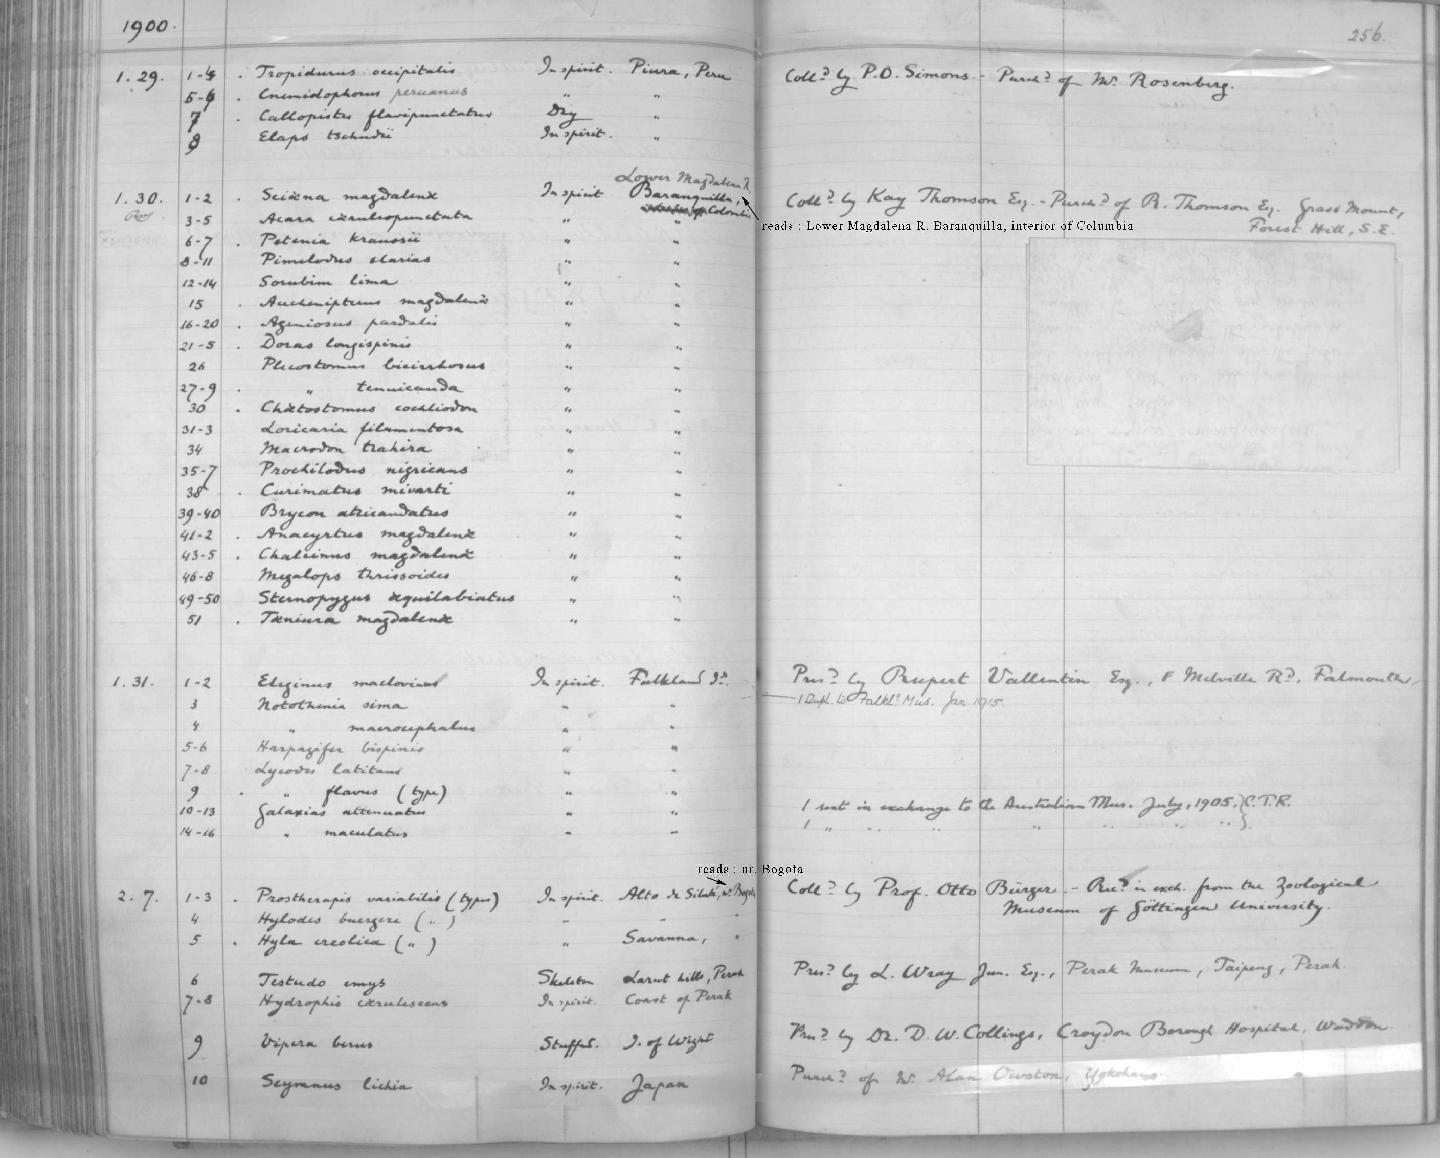 1900.
256.
1.29. 1-4 . Tropidurus occipitalis In spirit. Piura, Peru Coll.d by P.O. Simons - Purch.d of Mr Rosenberg.
5-6 . Cnemidophorus peruanus " "
7 . Callopistes flavipunctatus Dry "
8 Elaps tschudii In spirit. "
Lower Magdalena R.
1.30. 1-2 . Sciæna magdalenæ In spirit Baranquilla, Coll.d by Kay Thomson Esq. - Purch.d of R. Thomson Esq. Grass Mount,
3-5 . Acara cæruleopunctata " Colombia Forest Hill, S.E.
reads : Lower Magdalena R. Baranquilla, interior of Columbia
6-7 . Petenia kraussii " "
8-11 Pimelodus clarias " "
12-14 Sorubim lima " "
15 . Auchenipterus magdalenæ " "
16-20 . Ageniosus pardalis " "
21-5 . Doras longispinis " "
26 Plecostomus bicirrhosus " "
27-9 . " tenuicauda " "
30 . Chætostomus cochliodon " "
31-3 Loricaria filamentosa " "
34 Macrodon trahira " "
35-7 Prochilodus nigricans " "
38 . Curimatus mivarti " "
39-40 Brycon atricaudatus " "
41-2 . Anacyrtus magdalenæ " "
43-5 . Chalcinus magdalenæ " "
46-8 Megalops thrissoides " "
49-50 Sternopygus æquilabiatus " "
51 . Tæniura magdalenæ " "
1.31. 1-2 Eleginus maclovinus In spirit. Falkland Is. Pres.d by Rupert Vallentin Esq., Melville Rd, Falmouth,
3 Notothenia sima " " 1 Dupl. to Falkl.d Mus. Jan 1915.
4 " macrocephalus " "
5-6 Harpagifer bispinis " "
7-8 Lycodes latitans " "
9 . " flavus (type) " "
10-13 Galaxias attenuatus " " 1 sent in exchange to the Australian Mus. July, 1905. } C.T.R.
14-16 " maculatus " " 1 " " " " " " " }
reads : nr. Bogota
2.7. 1-3 . Prostherapis variabilis (types) In spirit. Alto de Sibaté, nr Bogota Coll.d by Prof. Otto Bürger - Rec.d in exch. from the Zoological
Museum of Göttingen University.
4 Hylodes buergeri ( " ) " " "
5 . Hyla creolica ( " ) " Savanna, "
6 Testudo emys Skeleton Larut hills, Perak Pres.d by L. Wray Jun. Esq., Perak Museum, Taipeng, Perak
7-8 Hydrophis cærulescens In spirit. Coast of Perak
9 Vipera berus Stuffed. I. of Wight Pres.d by Dr. D. W. Collings, Croydon Borough Hospital, Waddon.
10 Scymnus lichia In spirit. Japan Purch.d of Mr Alan Owston, Yokohama.